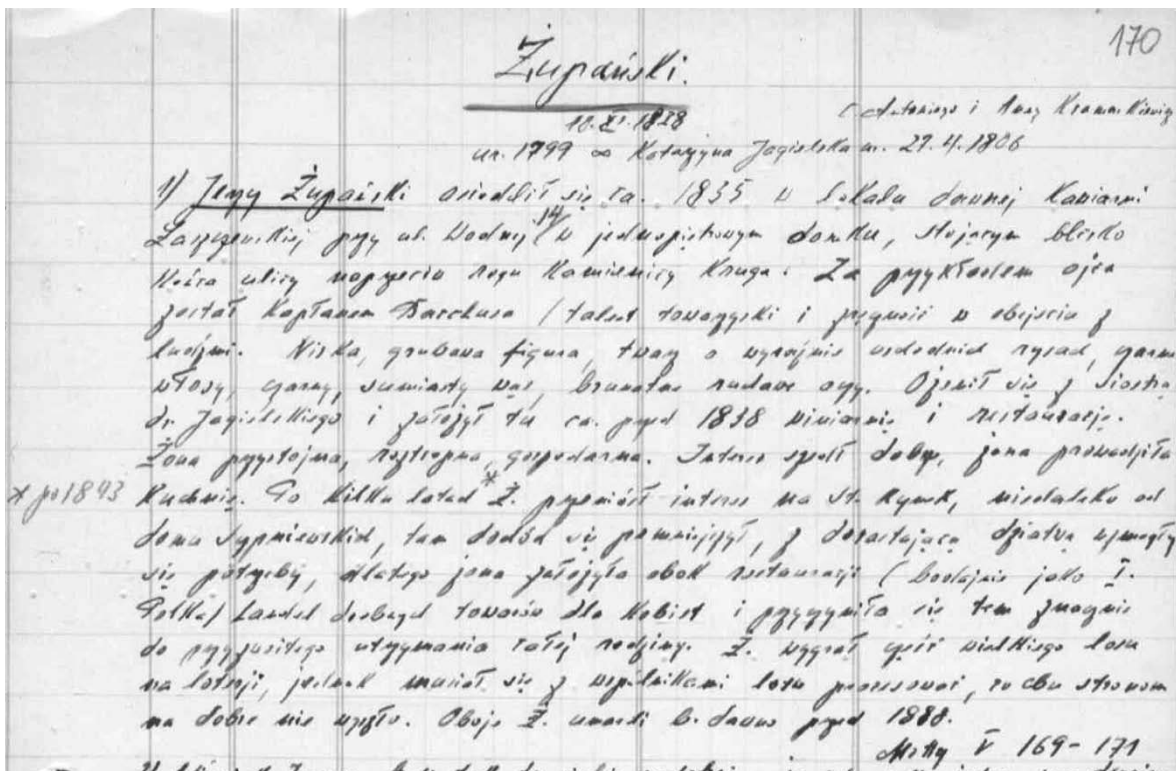 170
Żupański.
10.XI.1828 (Antoniego i Anny
ur. 1799 ∞ Katarzyna Jagielska ur. 27.4.1806
1) Jerzy Żupański osiedlił się ca. 1835 w lokalu dawnej Kawiarni
przy ul. Wodnej 14 w jednopiętrowym domku, stojącym blisko
końca ulicy naprzeciw rogu Kamienicy Kruga. Za przykładem ojca
został Kapłanem Bacchusa / talent towarzyski i zręczność w obejściu z
ludźmi. Niska, grubawa figura, twarz o wyraźnie rysach, czarne
włosy, czarny, sumiasty wąs, brunatne rudawe oczy. Ożenił się z siostrą
dr. Jagielskiego i założył tu ca. przed 1838 winiarnię i restaurację.
Żona przystojna, roztropna, gospodarna. Interes szedł dobrze, żona prowadziła
* po 1843 Kuchnię. Po kilku latach * Ż. przeniósł interes na St. Rynek, niedaleko od
domu Sypniewskich, tam dochód się pomniejszył, z dorastającą dziatwą wzmogły
się potrzeby, dlatego żona założyła obok restauracji (bodajnie jako I.
Polka) handel towarów dla kobiet i przyczyniła się tem znacznie
do przyzwoitego utrzymania całej rodziny. Ż. wygrał część wielkiego losu
na loterji, jednak musiał się z wspólnikami losu procesować, co obu stronom
na dobre nie wyszło. Oboje Ż. umarli b. dawno przed 1888.
Motty V 169-171